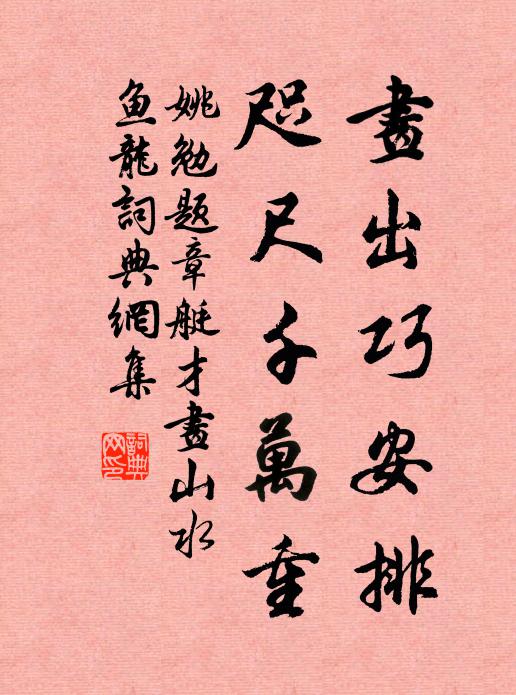 畫出巧安排
咫尺千萬重
姚勉題章艇才畫山水
魚龍詞典網集
詞典網印